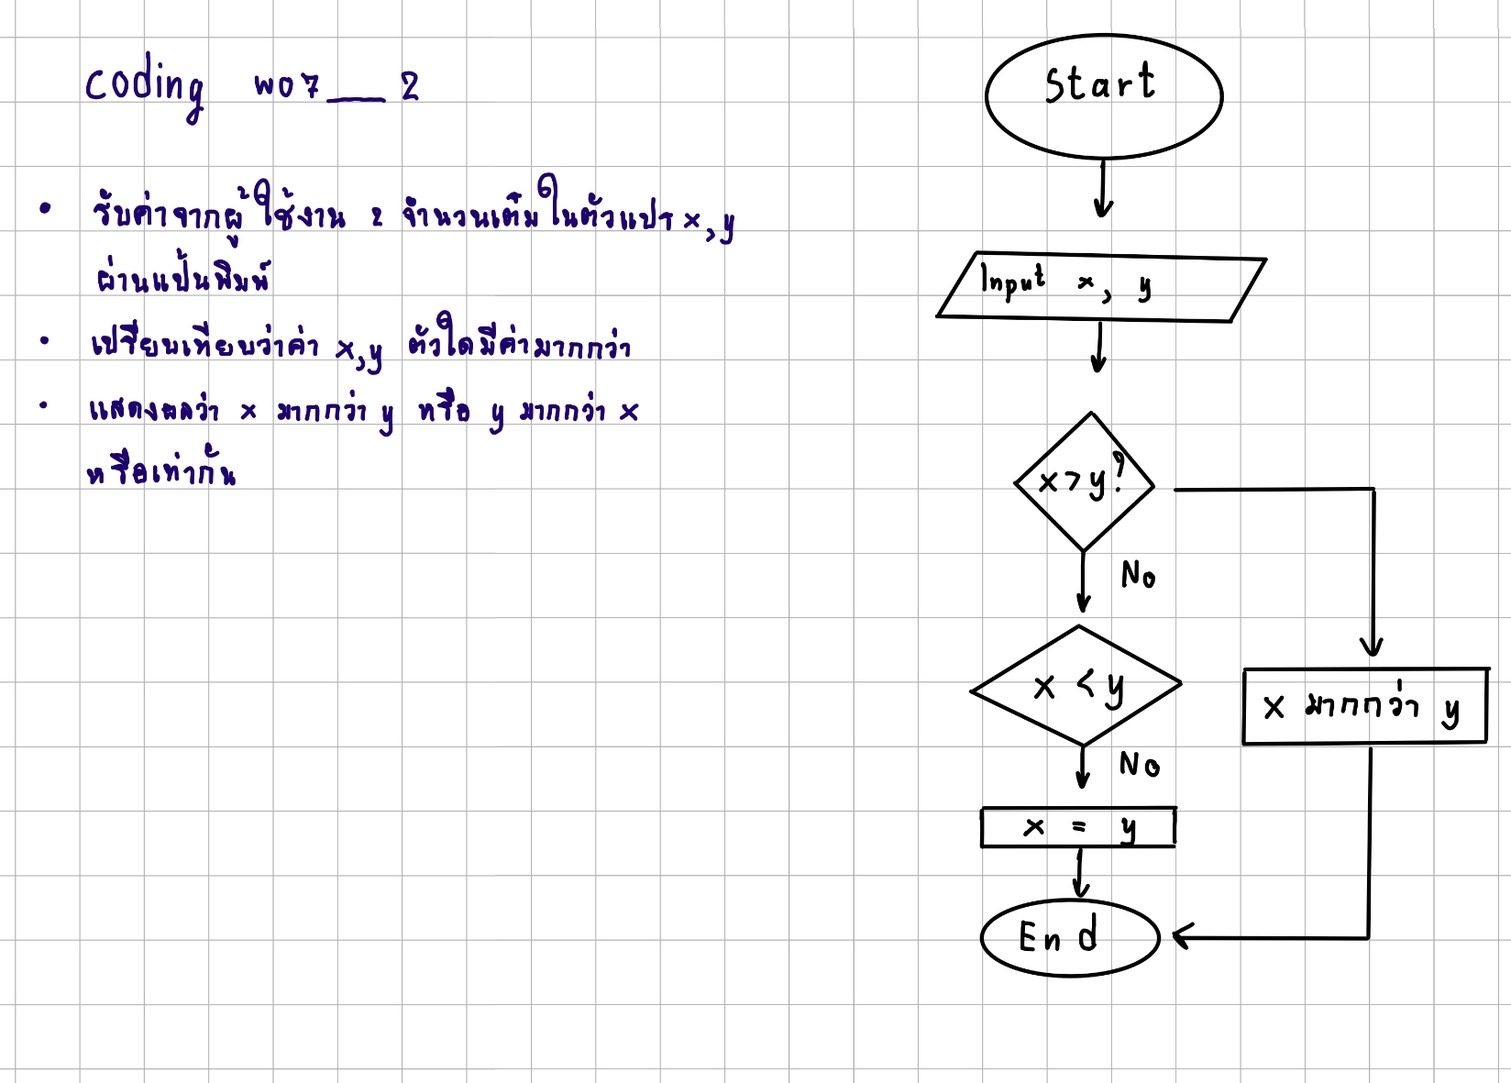 Coding W07__2
• รับค่าจากผู้ใช้งาน 2 จำนวนเต็มในตัวแปร x,y
ผ่านแป้นพิมพ์
• เปรียบเทียบว่าค่า x,y ตัวใดมีค่ามากกว่า
• แสดงผลว่า x มากกว่า y หรือ y มากกว่า x
หรือเท่ากัน
Start
Input x, y
x > y?
No
x < y
x มากกว่า y
No
x = y
End